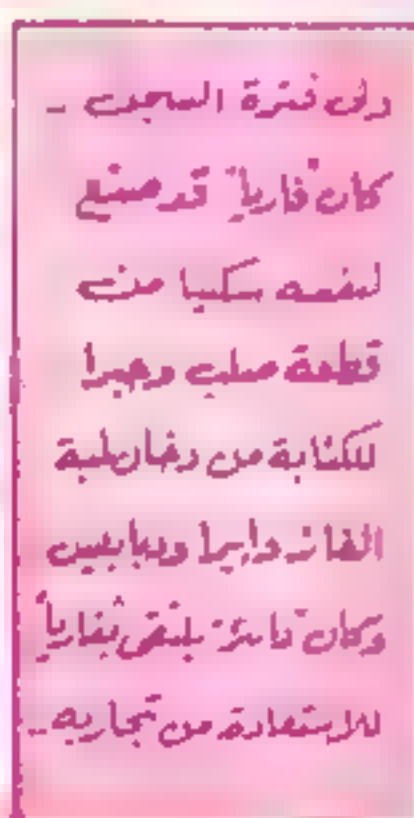 وفى فترة السجن -
كان "فاريا" قد صنع
لنفسه سكينا من
قطعة صلب وحبرا
للكتابة من دخان لمبة
الغاز وابرا ودبابيس
وكان "دانتز" يلتقى بفاريا
للاستفادة من تجاربه ..